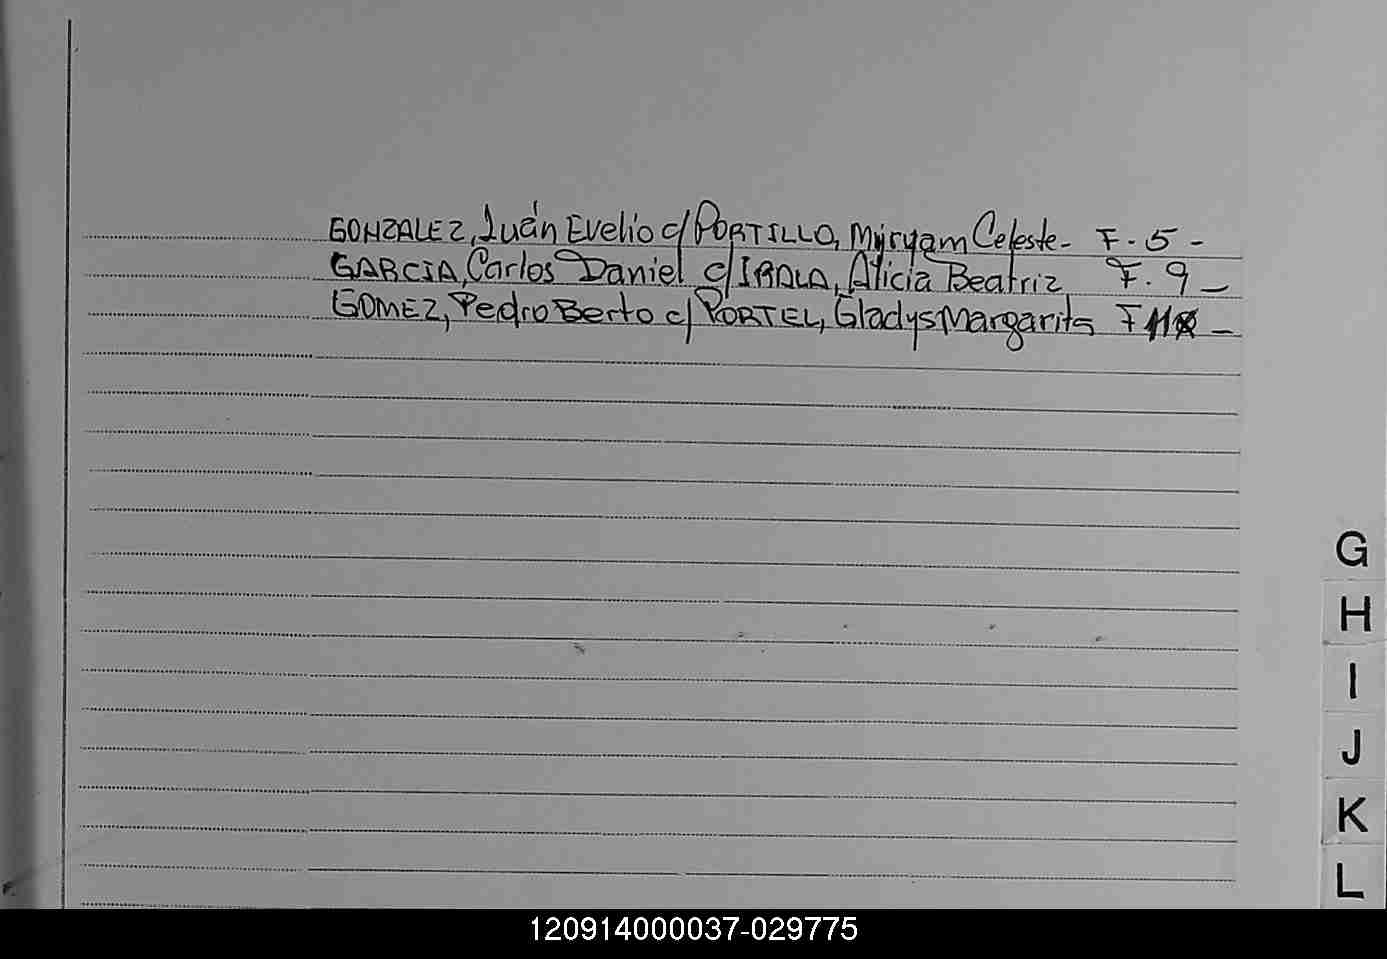 GONZALEZ, Juán Evelio c/ PORTILLO, Myryam Celeste - F. 5 -
GARCIA, Carlos Daniel c/ IRALA, Alicia Beatriz F. 9 -
GOMEZ, Pedro Berto c/ PORTEL, Gladys Margarita F 11 -
G
H
I
J
K
L
120914000037-029775